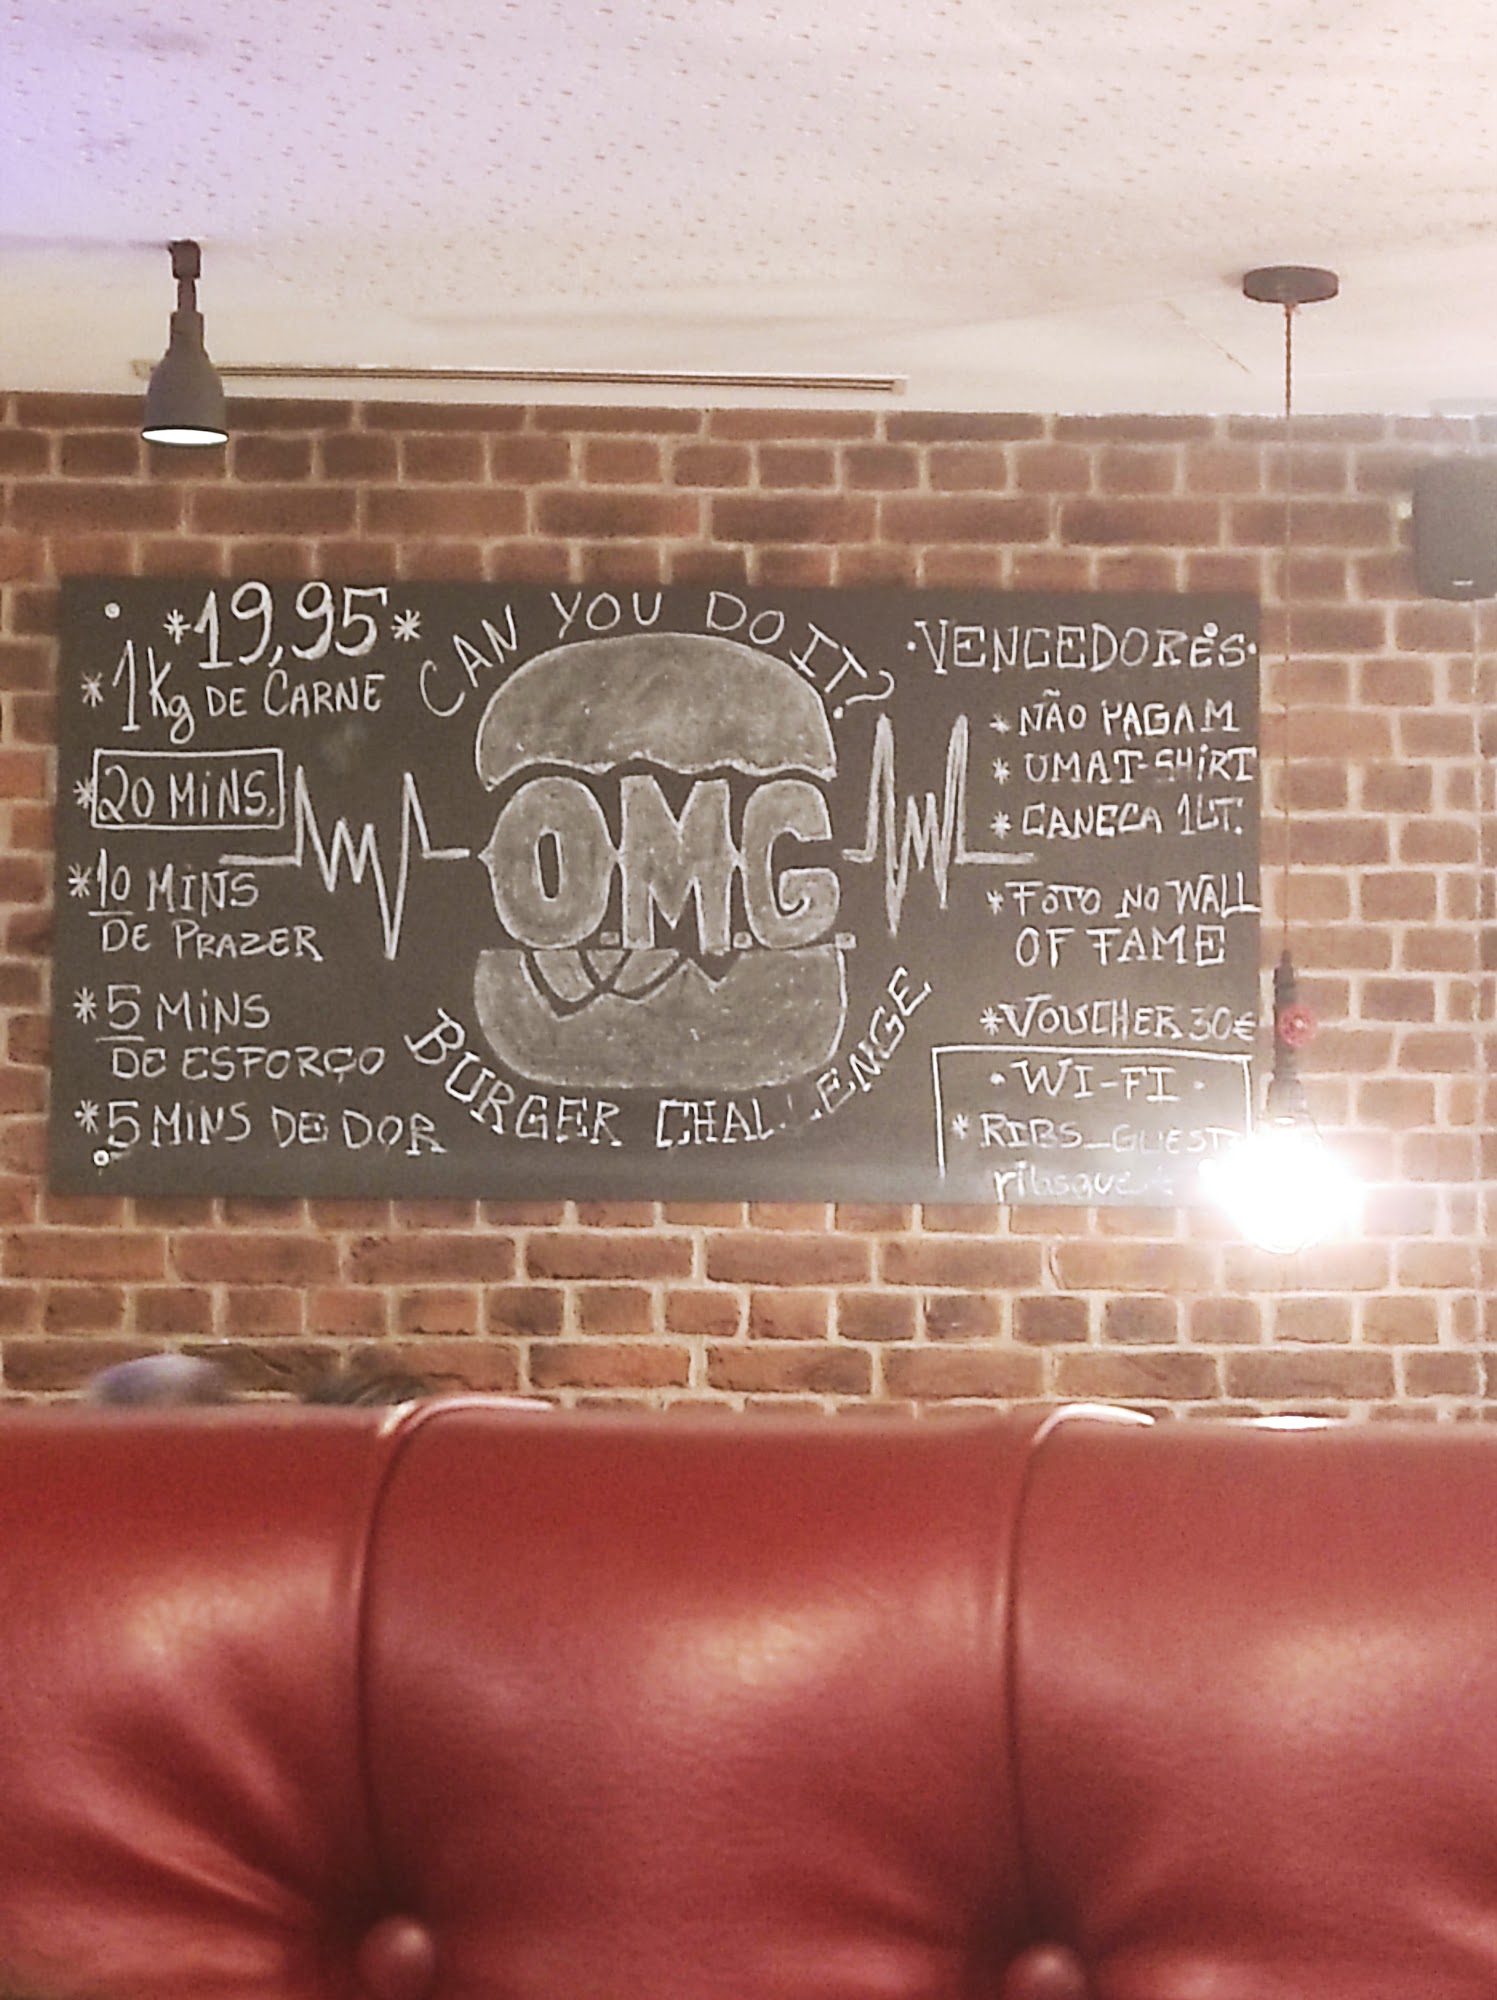 *19,95*
*1Kg DE CARNE
*20 MINS.
*10 MINS
DE PRAZER
*5 MINS
DE ESFORÇO
*5 MINS DE DOR
CAN YOU DO IT?
O.M.G.
BURGER CHALLENGE
·VENCEDORES·
*NÃO PAGAM
*UMA T-SHIRT
*CANECA 1LT.
*FOTO NO WALL
OF FAME
*VOUCHER 30€
·WI-FI·
*RIBS_GUEST